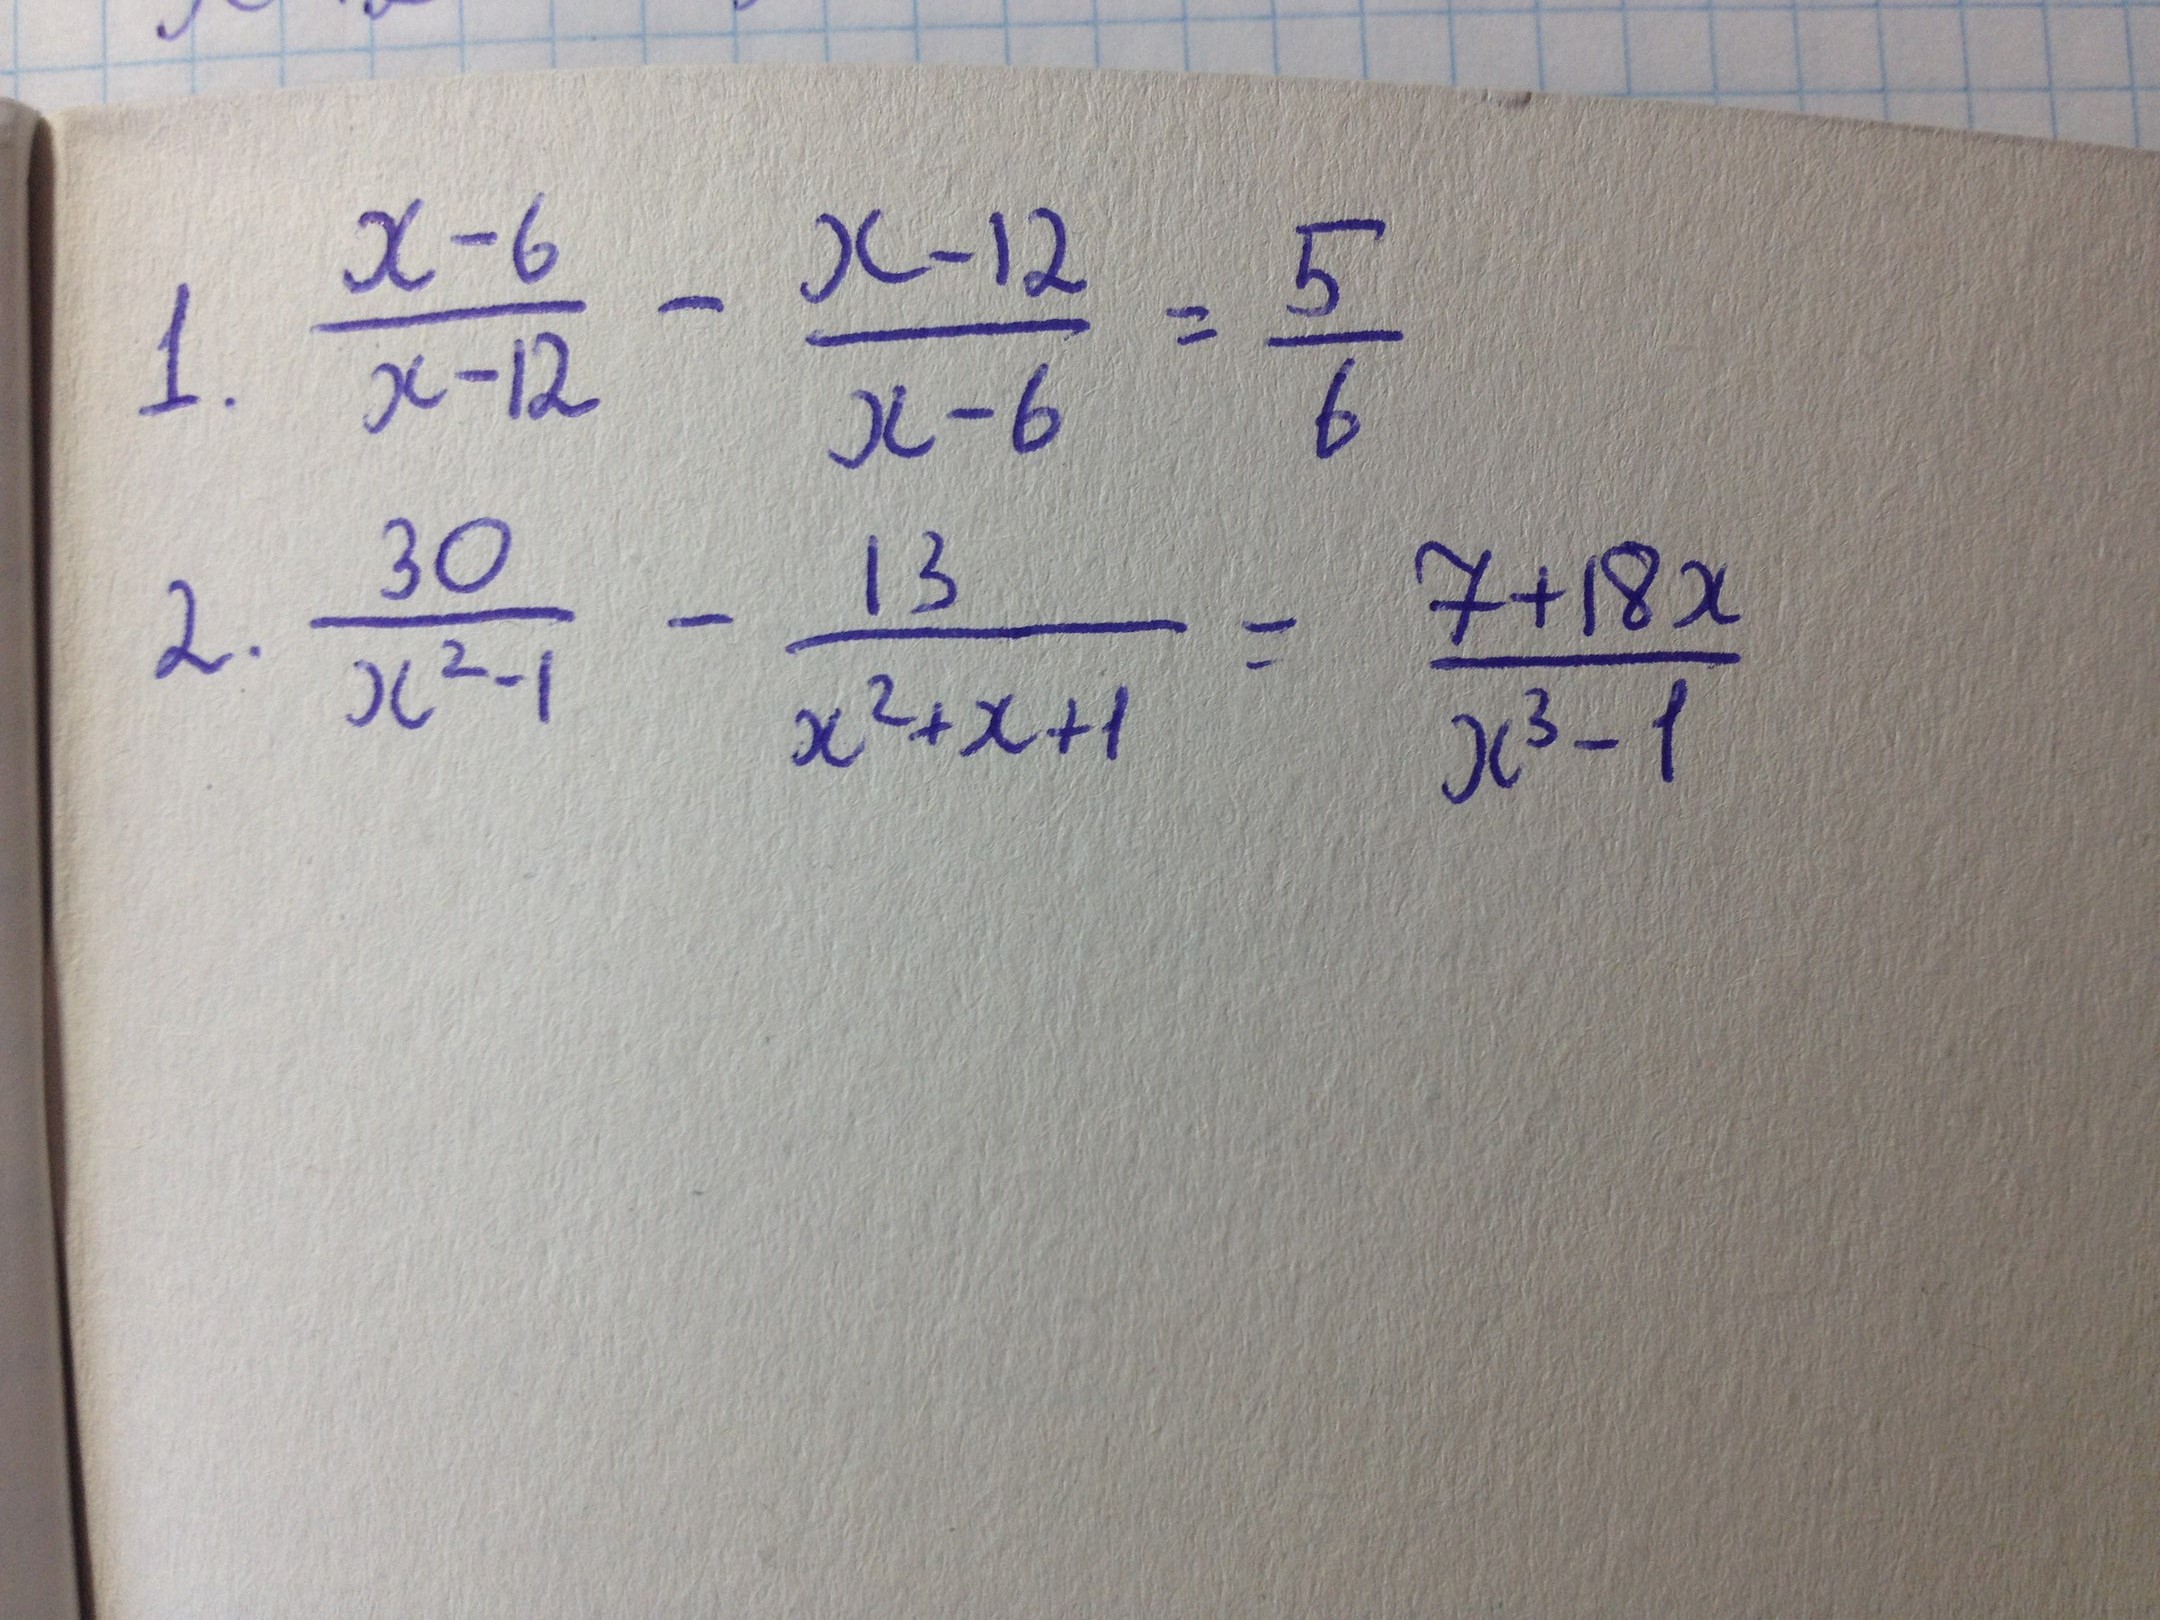 1. \frac{x-6}{x-12} - \frac{x-12}{x-6} = \frac{5}{6}
2. \frac{30}{x^2-1} - \frac{13}{x^2+x+1} = \frac{7+18x}{x^3-1}